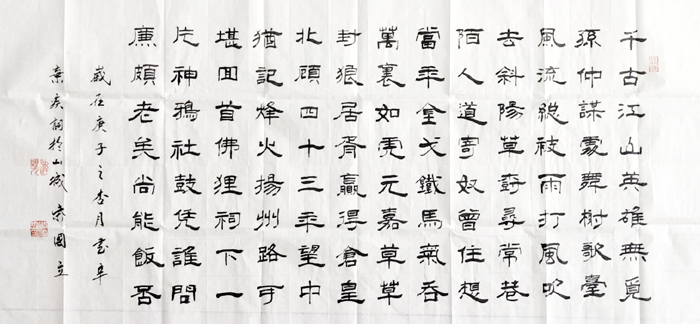 千古江山英雄無覓
孫仲謀處舞榭歌臺
風流總被雨打風吹
去斜陽草尌尋常巷
陌人道寄奴曾住想
當年金戈鐵馬氣吞
萬裏如虎元嘉草草
封狼居胥贏得倉皇
北顧四十三年望中
猶記烽火揚州路可
堪回首佛狸祠下一
片神鴉社鼓凭誰問
廉頗老矣尚能飯否
歲在庚子之杏月書辛
棄疾詞於山城國立